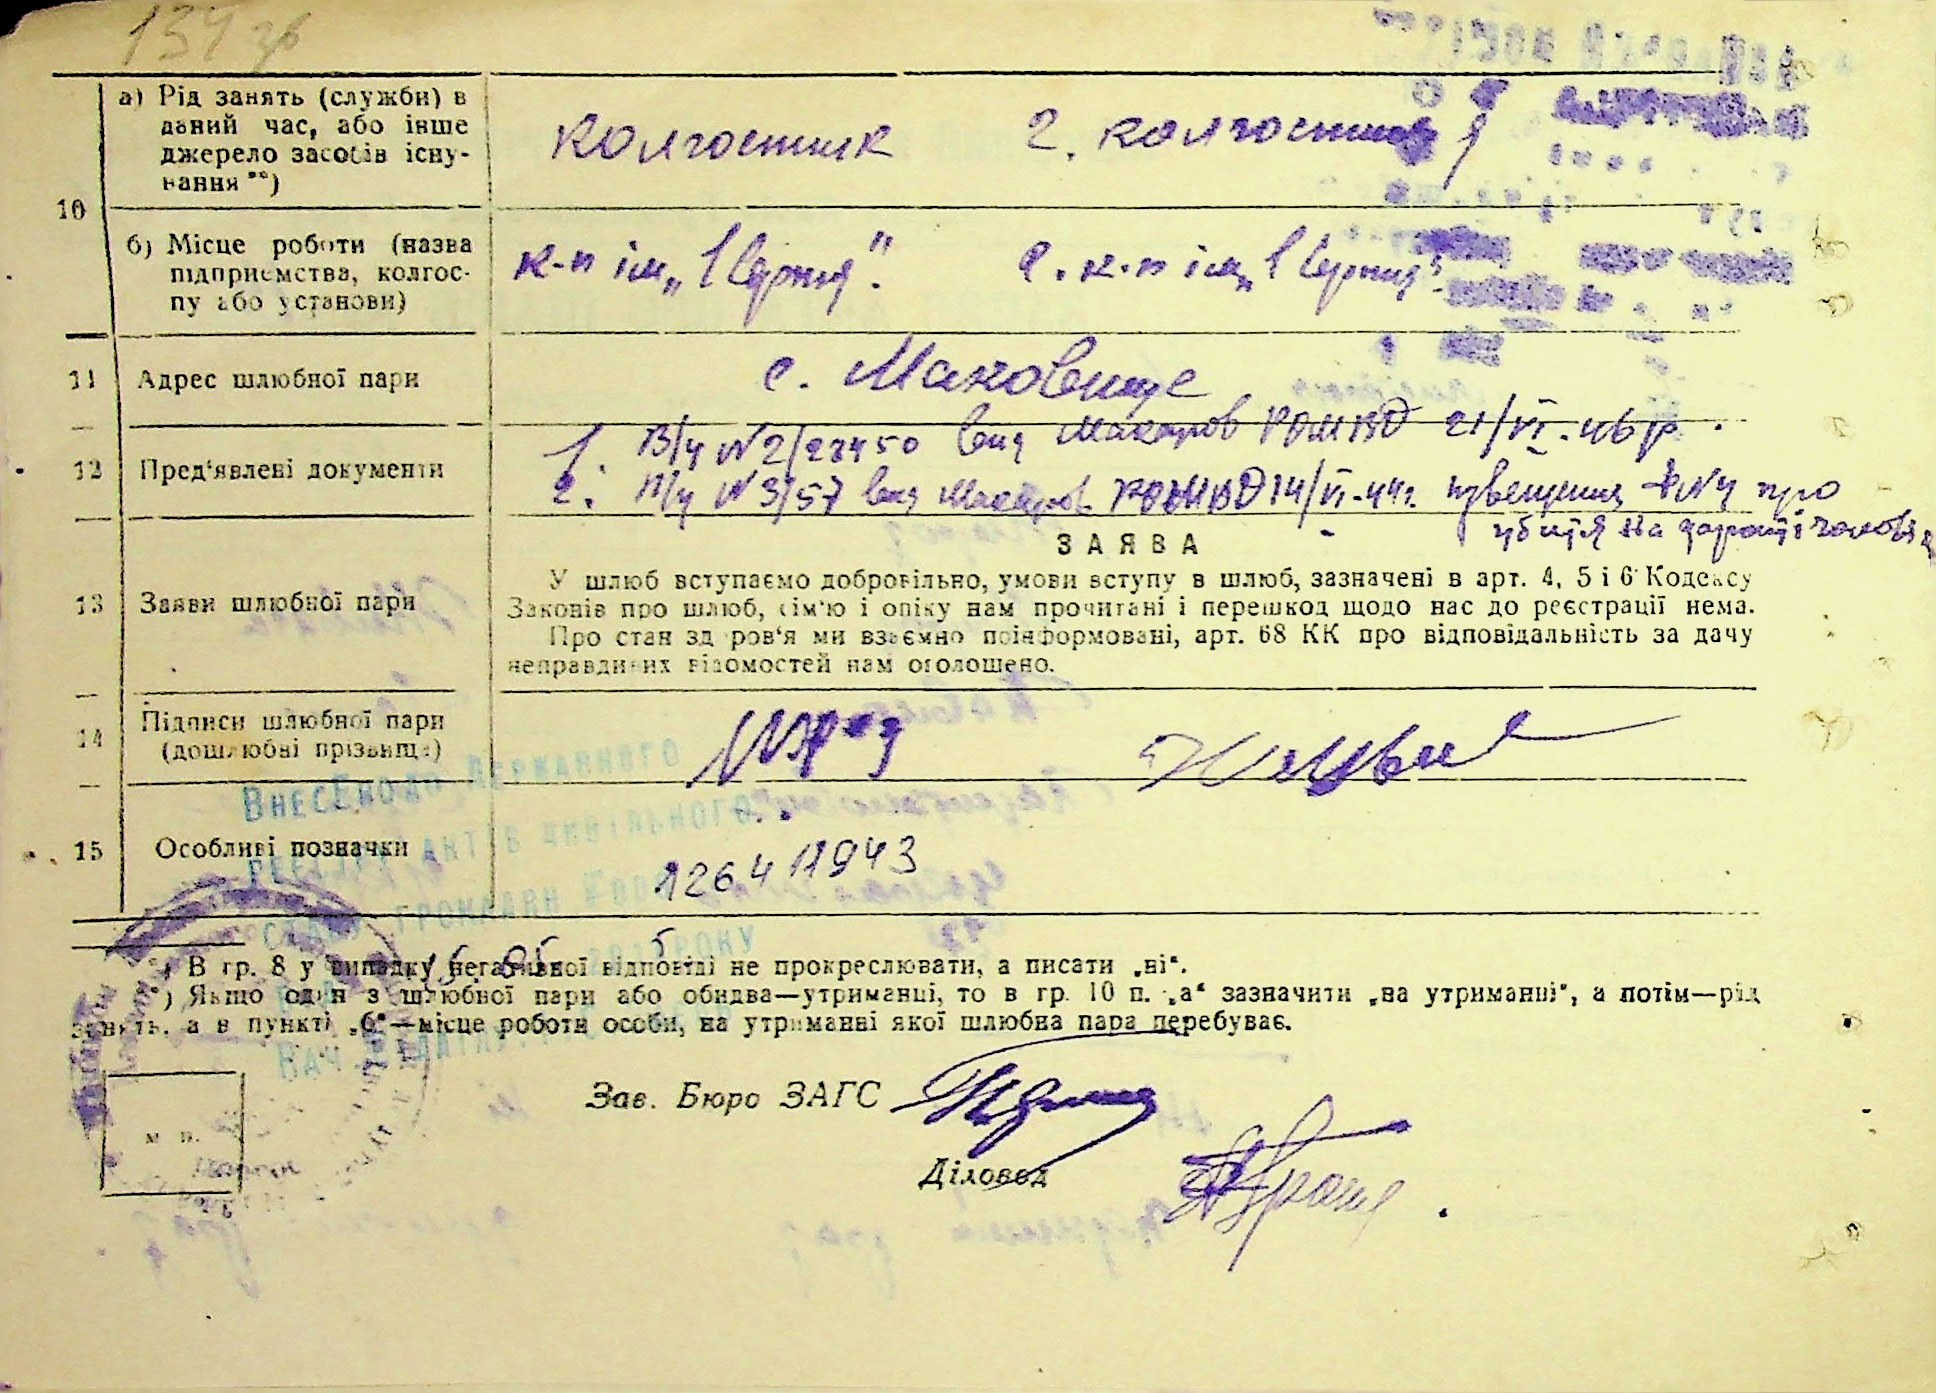 134 зв
а) Рід занять (служби) в
даний час, або інше
джерело засобів існу-
вання **)
колгоспник 2. колгоспниця
10
б) Місце роботи (назва
підприємства, колгос-
пу або установи)
к-п ім „1 Серпня". 2. к-п ім „1 Серпня"
11 Адрес шлюбної пари
с. Маковище
12 Пред'явлені документи
1. В/ч №2/23450 Макаров РОМВД 21/VI-46 р.
2. П/ч №3/57 Макаров РОМВД 14/VI-44г. извещения про
убиття на фронті
ЗАЯВА
13 Заяви шлюбної пари
У шлюб вступаємо добровільно, умови вступу в шлюб, зазначені в арт. 4, 5 і 6 Кодексу
Законів про шлюб, сім'ю і опіку нам прочитані і перешкод щодо нас до реєстрації нема.
Про стан здоров'я ми взаємно поінформовані, арт. 68 КК про відповідальність за дачу
неправдивих відомостей нам оголошено.
14 Підписи шлюбної пари
(дошлюбні прізвища)
15 Особливі позначки
Внесено до Державного
реєстру актів цивільного
стану громадян
року
126411943
*) В гр. 8 у випадку негативної відповіді не прокреслювати, а писати „ні".
**) Якщо один з шлюбної пари або обидва—утриманці, то в гр. 10 п. „а" зазначити „на утриманні", а потім—рід
занять, а в пункті „б"—місце роботи особи, на утриманні якої шлюбна пара перебуває.
Зав. Бюро ЗАГС
Діловод
м п.